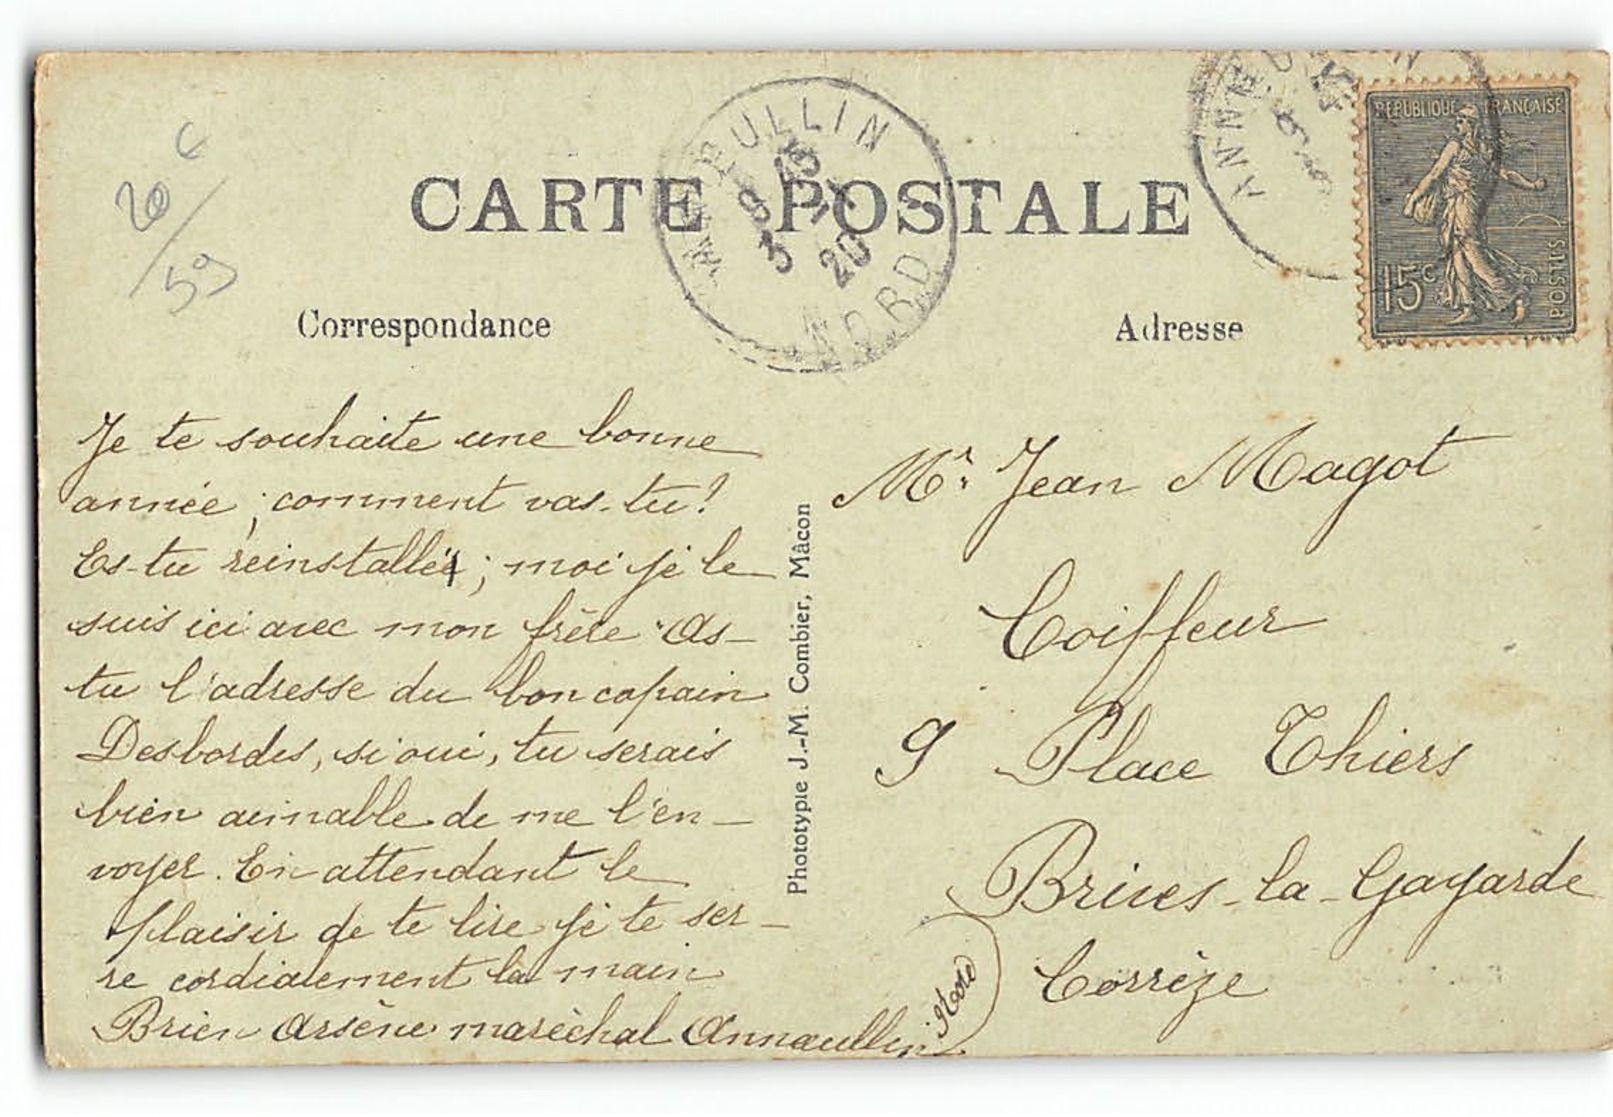 20 c
59
CARTE POSTALE
NORD
8 45
3
20
ANNŒULLIN
RÉPUBLIQUE FRANÇAISE
15c
POSTES
Correspondance
Adresse
Je te souhaite une bonne
année ; comment vas-tu !
Es-tu réinstallé ; moi je le
suis ici avec mon frère. As-
tu l'adresse du bon copain
Desbordes, si oui, tu serais
bien aimable de me l'en-
voyer. En attendant le
plaisir de te lire je te ser-
re cordialement la main
Brien Arsène maréchal Annœullin
Nord
Phototypie J.-M. Combier, Mâcon
Mr Jean Magot
Coiffeur
9 Place Thiers
Brives-la-Gayarde
Corrèze